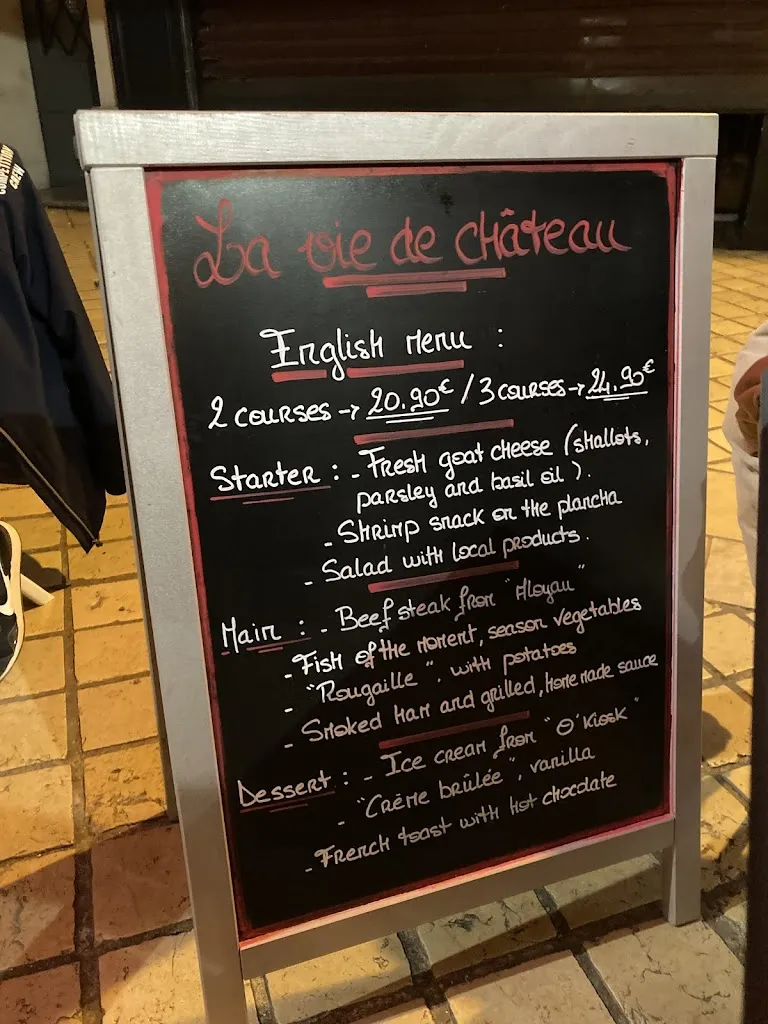 COMPETITION
CREW
La vie de château
English menu :
2 courses → 20.90€ / 3 courses → 24.90€
Starter : - Fresh goat cheese (shallots,
parsley and basil oil).
- Shrimp snack on the plancha
- Salad with local products.
Main : - Beef steak from "Aloyau"
- Fish of the moment, season vegetables
- "Rougaille", with potatoes
- Smoked ham and grilled, home made sauce
Dessert : - Ice cream from "O'Kiosk"
- "Crème brûlée", vanilla
- French toast with hot chocolate